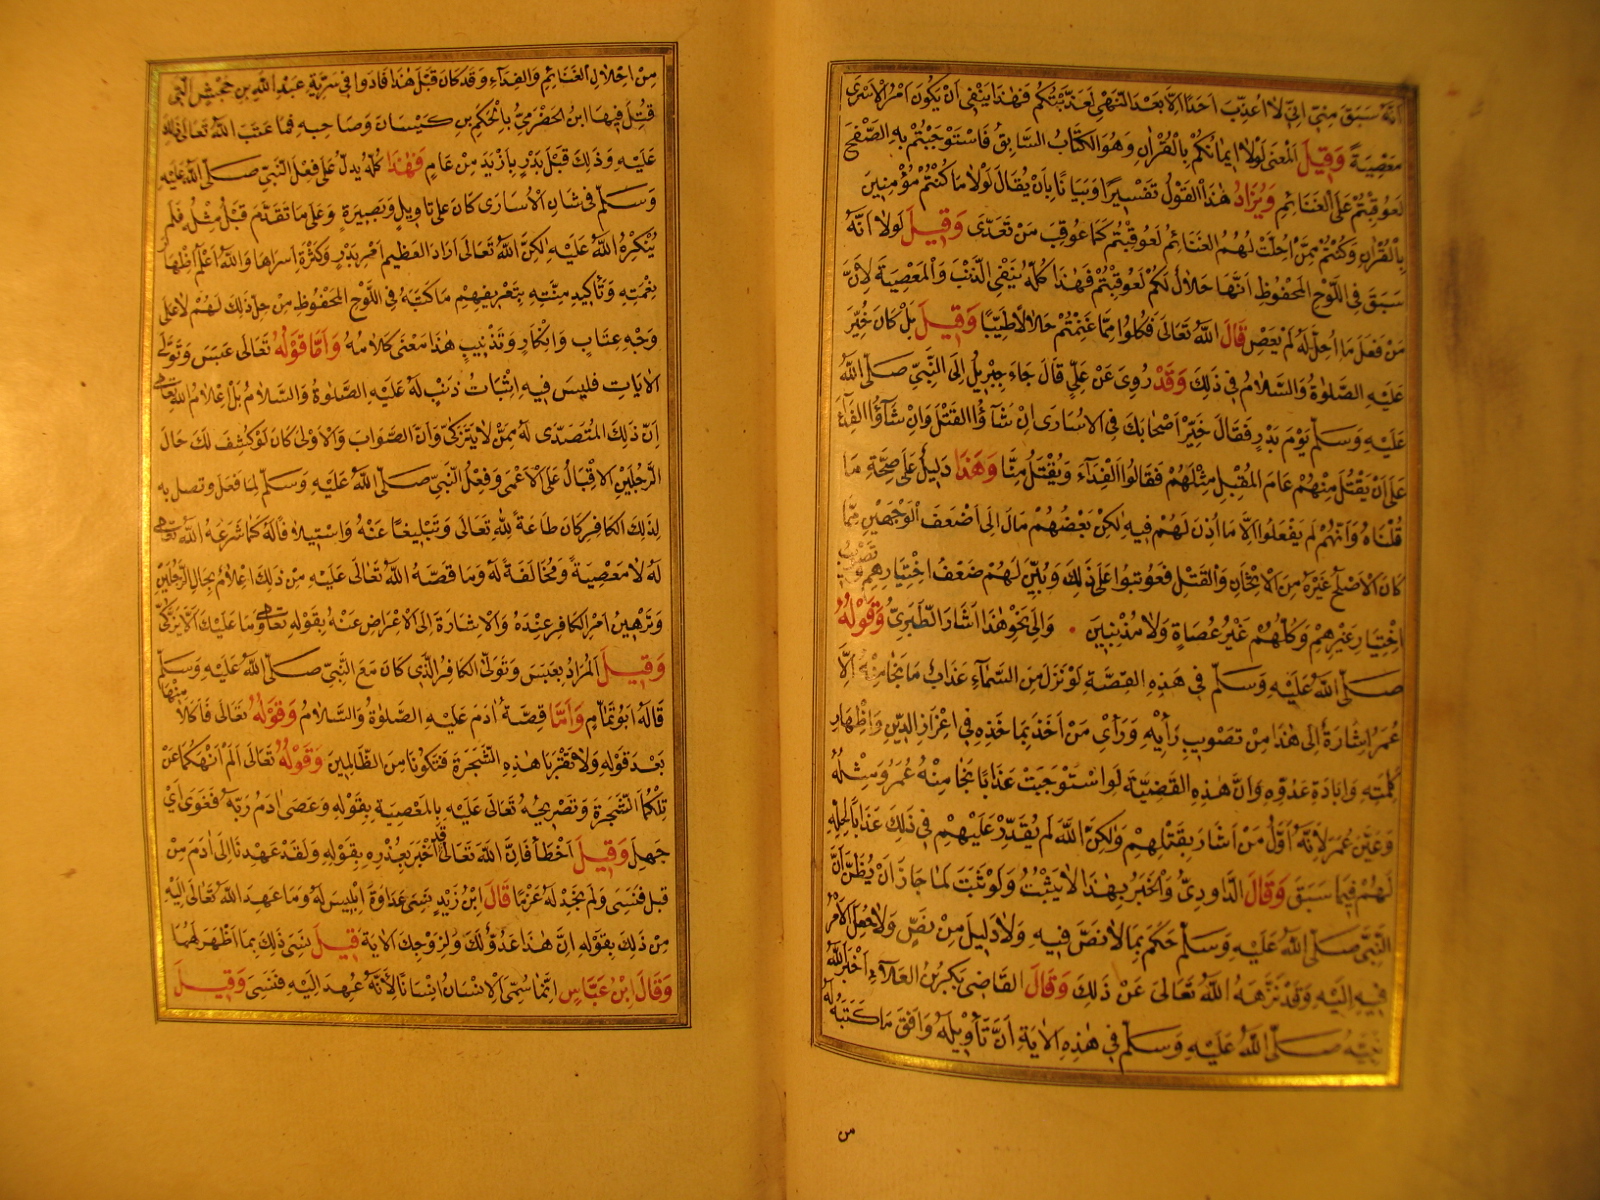 انه سبق مني اني لا اعذب احدا الا بعد النهي لعذبتكم فهذا ينفي ان يكون امر الاسرى
معصية وقيل المعنى لولا ايمانكم بالقران وهو الكتاب السابق فاستوجبتم به الصفح
لعوقبتم على الغنائم ويزاد هذا القول تفسيرا وبيانا بان يقال لولا ما كنتم مؤمنين
بالقران وكنتم ممن احلت لهم الغنائم لعوقبتم كما عوقب من تعدى وقيل لولا انه
سبق في اللوح المحفوظ انها حلال لكم لعوقبتم فهذا كله ينفي الذنب والمعصية لان
من فعل ما احل له لم يعص قال الله تعالى فكلوا مما غنمتم حلالا طيبا وقيل بل كان خير
عليه الصلوة والسلام في ذلك وقد روي عن علي قال جاء جبريل الى النبي صلى الله
عليه وسلم يوم بدر فقال خير اصحابك في الاسارى ان شاؤا القتل وان شاؤا الفداء
على ان يقتل منهم عام المقبل مثلهم فقالوا الفداء ويقتل منا وهذا دليل على صحة ما
قلناه وانهم لم يفعلوا الا ما اذن لهم فيه لكن بعضهم مال الى اضعف الوجهين مما
كان الاصلح غيره من الاثخان والقتل فعوتبوا على ذلك وبين لهم ضعف اختيارهم وتصويب
اختيار غيرهم وكلهم غير عصاة ولا مذنبين والى نحو هذا اشار الطبري وقوله
صلى الله عليه وسلم في هذه القصة لو نزل من السماء عذاب ما نجا منه الا
عمر اشارة الى هذا من تصويب رأيه ورأي من اخذ بماخذه في اعزاز الدين واظهار
كلمته وابادة عدوه وان هذه القضية لو استوجبت عذابا نجا منه عمر ومثله
وعين عمر لانه اول من اشار بقتلهم ولكن الله لم يقدر عليهم في ذلك عذابا لحله
لهم فيما سبق وقال الداودي والخبر بهذا لا يثبت ولو ثبت لما جاز ان يظن ان
النبي صلى الله عليه وسلم حكم بما لا نص فيه ولا دليل من نص ولا جعل الامر
فيه اليه وقد نزهه الله تعالى عن ذلك وقال القاضي بكر بن العلاء اخبر الله
نبيه صلى الله عليه وسلم في هذه الاية ان تأويله وافق ما كتبه له
من
من احلال الغنائم والفداء وقد كان قبل هذا فادوا في سرية عبد الله بن جحش التي
قتل فيها ابن الحضرمي بالحكم بن كيسان وصاحبه فما عتب الله تعالى ذلك
عليه وذلك قبل بدر بازيد من عام فهذا كله يدل على فعل النبي صلى الله عليه
وسلم في شان الاسارى كان على تاويل وبصيرة وعلى ما تقدم قبل مثله فلم
ينكره الله عليه لكن الله تعالى اراد العظيم امر بدر وكثرة اسراها والله اعلم اظهار
نعمته وتأكيد منته بتعريفهم ما كتبه في اللوح المحفوظ من حل ذلك لهم لا على
وجه عتاب وانكار وتذنيب هذا معنى كلامه واما قوله تعالى عبس وتولى
الايات فليس فيه اثبات ذنب له عليه الصلوة والسلام بل اعلام الله تعالى
ان ذلك المتصدى له ممن لا يتزكى وان الصواب والاولى كان لو كشف لك حال
الرجلين الاقبال على الاعمى وفعل النبي صلى الله عليه وسلم لما فعل وتصل به
لذلك الكافر كان طاعة لله تعالى وتبليغا عنه واستيلافا له كما شرعه الله تعالى
له لا معصية ومخالفة له وما قصه الله تعالى عليه من ذلك اعلام بحال الرجلين
وترهين امر الكافر عنده والاشارة الى الاعراض عنه بقوله تعالى وما عليك الا يزكى
وقيل المراد بعبس وتولى الكافر الذي كان مع النبي صلى الله عليه وسلم
قاله ابو تمام واما قصة ادم عليه الصلوة والسلام وقوله تعالى فاكلا منها
بعد قوله ولا تقربا هذه الشجرة فتكونا من الظالمين وقوله تعالى الم انهكما عن
تلكما الشجرة وتصريحه تعالى عليه بالمعصية بقوله وعصى ادم ربه فغوى اي
جهل وقيل اخطأ فان الله تعالى قد اخبر بعذره بقوله ولقد عهدنا الى ادم من
قبل فنسي ولم نجد له عزما قال ابن زيد نسي عداوة ابليس له وما عهد الله تعالى اليه
من ذلك بقوله ان هذا عدو لك ولزوجك الاية قيل نسي ذلك بما اظهر لهما
وقال ابن عباس انما سمي الانسان انسانا لانه عهد اليه فنسي وقيل